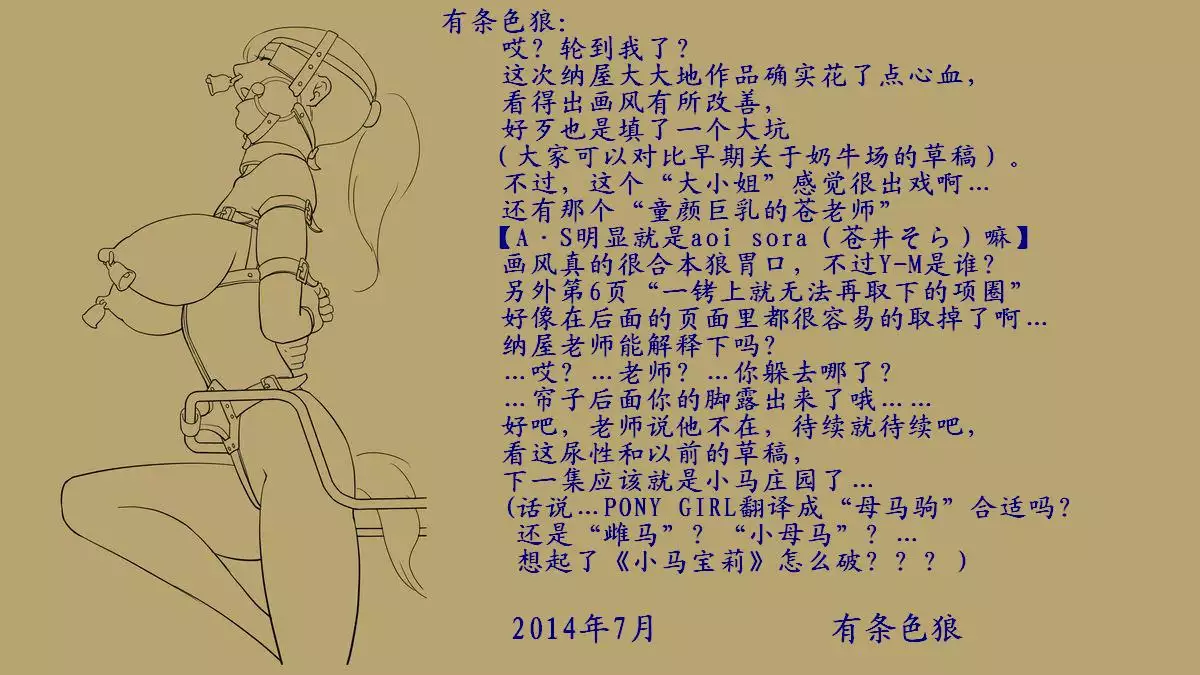 有条色狼：
哎？轮到我了？
这次纳屋大大地作品确实花了点心血，
看得出画风有所改善，
好歹也是填了一个大坑
（大家可以对比早期关于奶牛场的草稿）。
不过，这个“大小姐”感觉很出戏啊…
还有那个“童颜巨乳的苍老师”
【A·S明显就是aoi sora（苍井そら）嘛】
画风真的很合本狼胃口，不过Y-M是谁？
另外第6页“一铐上就无法再取下的项圈”
好像在后面的页面里都很容易的取掉了啊…
纳屋老师能解释下吗？
…哎？…老师？…你躲去哪了？
…帘子后面你的脚露出来了哦……
好吧，老师说他不在，待续就待续吧，
看这尿性和以前的草稿，
下一集应该就是小马庄园了…
(话说…PONY GIRL翻译成“母马驹”合适吗？
还是“雌马”？“小母马”？…
想起了《小马宝莉》怎么破？？？)
2014年7月 有条色狼